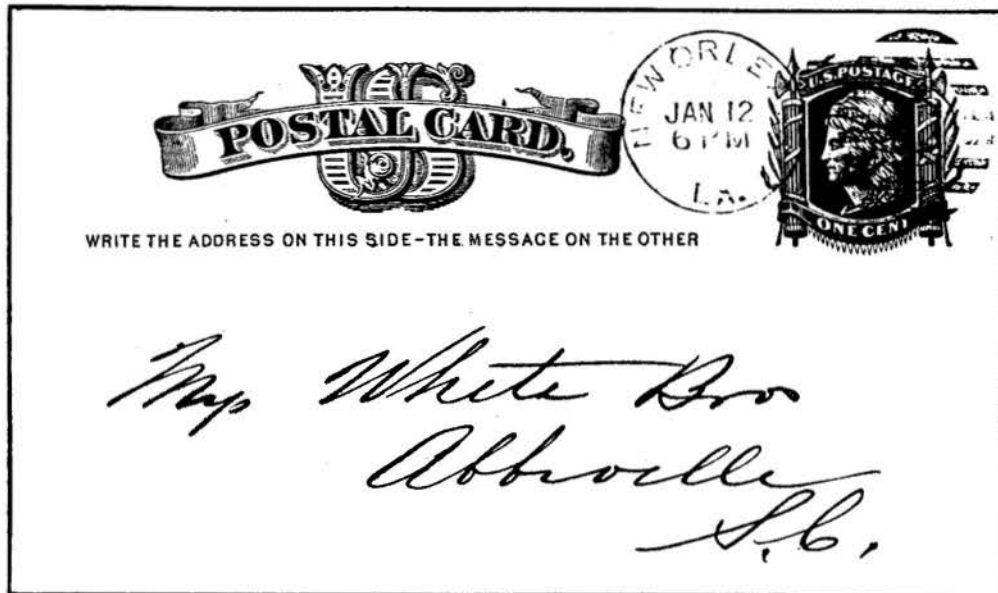 US
POSTAL CARD.
NEW ORLE
JAN 12
6 PM
LA.
U.S. POSTAGE
ONE CENT
WRITE THE ADDRESS ON THIS SIDE-THE MESSAGE ON THE OTHER
White Bros
Abbeville
S.C.